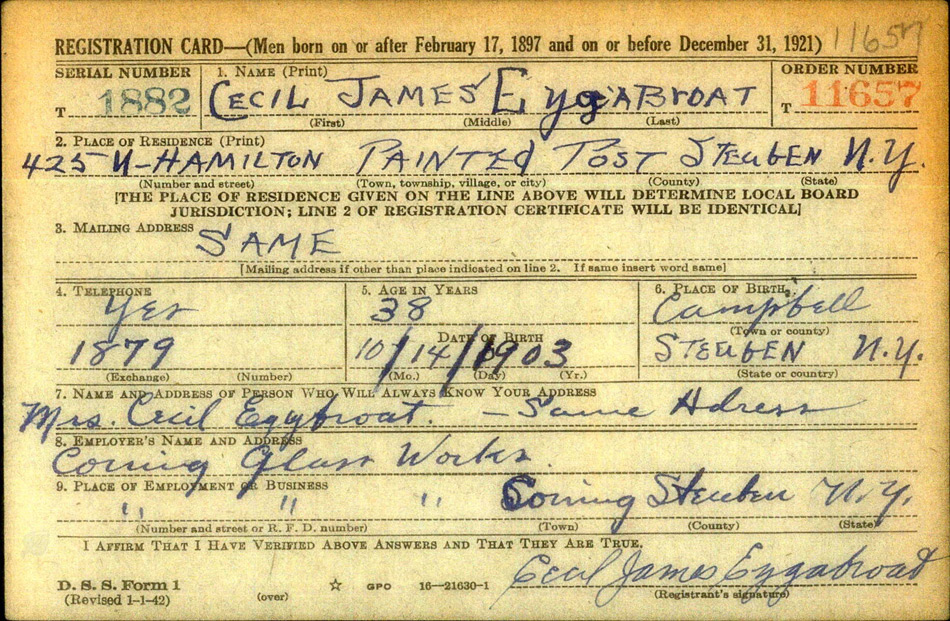 REGISTRATION CARD—(Men born on or after February 17, 1897 and on or before December 31, 1921) 11657
SERIAL NUMBER 1. NAME (Print) ORDER NUMBER
T 1882 CECIL JAMES EyggABROAT T 11657
(First) (Middle) (Last)
2. PLACE OF RESIDENCE (Print)
425 N-HAMILTON PAINTED POST STEUBEN N.Y.
(Number and street) (Town, township, village, or city) (County) (State)
[THE PLACE OF RESIDENCE GIVEN ON THE LINE ABOVE WILL DETERMINE LOCAL BOARD
JURISDICTION; LINE 2 OF REGISTRATION CERTIFICATE WILL BE IDENTICAL]
3. MAILING ADDRESS
SAME
[Mailing address if other than place indicated on line 2. If same insert word same]
4. TELEPHONE 5. AGE IN YEARS 6. PLACE OF BIRTH
Yes 38 Campbell
DATE OF BIRTH (Town or county)
1879 10/14/1903 STEUBEN N.Y.
(Exchange) (Number) (Mo.) (Day) (Yr.) (State or country)
7. NAME AND ADDRESS OF PERSON WHO WILL ALWAYS KNOW YOUR ADDRESS
Mrs. Cecil Eggbroat. - Same Adress
8. EMPLOYER'S NAME AND ADDRESS
Corning Glass Works
9. PLACE OF EMPLOYMENT OR BUSINESS
" " " Corning Steuben N.Y.
(Number and street or R. F. D. number) (Town) (County) (State)
I AFFIRM THAT I HAVE VERIFIED ABOVE ANSWERS AND THAT THEY ARE TRUE.
Cecil James Eygabroat
D. S. S. Form 1 ☆ GPO 16—21630-1 (Registrant's signature)
(Revised 1-1-42) (over)